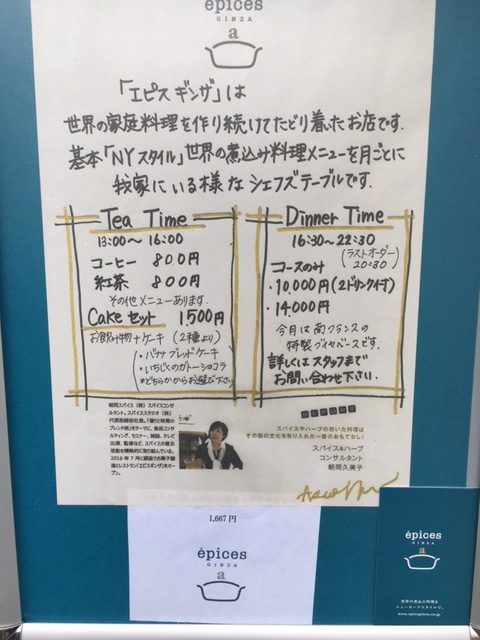 épices
GINZA
a
「エピスギンザ」は
世界の家庭料理を作り続けてたどり着いたお店です.
基本「NYスタイル」世界の煮込み料理メニューを月ごとに
我家にいる様なシェフズテーブルです.
Tea Time
13:00〜16:00
コーヒー 800円
紅茶 800円
その他メニューあります.
Cakeセット 1,500円
お飲み物+ケーキ (2種より)
・バナナブレッドケーキ
・いちじくのガトーショコラ
※どちらかからお選び下さい
Dinner Time
16:30〜22:30
(ラストオーダー
20:30)
コースのみ
・10,000円(2ドリンク付)
・14,000円
今月は南フランスの
特製ブイヤベースです.
詳しくはスタッフまで
お問い合わせ下さい.
朝岡スパイス(株)スパイスコンサ
ルタント。スパイススタジオ(株)
代表取締役社長。
2016年7月に銀座で
レストラン「エピスギンザ」をオー
プン。
スパイスやハーブの効いた料理は
その国の文化を取り入れた一番のおもてなし！
スパイス&ハーブ
コンサルタント
朝岡久美子
1,667円
épices
GINZA
a
épices
GINZA
a
世界の煮込み料理を
ニューヨークスタイルで。
www.epicesginza.co.jp